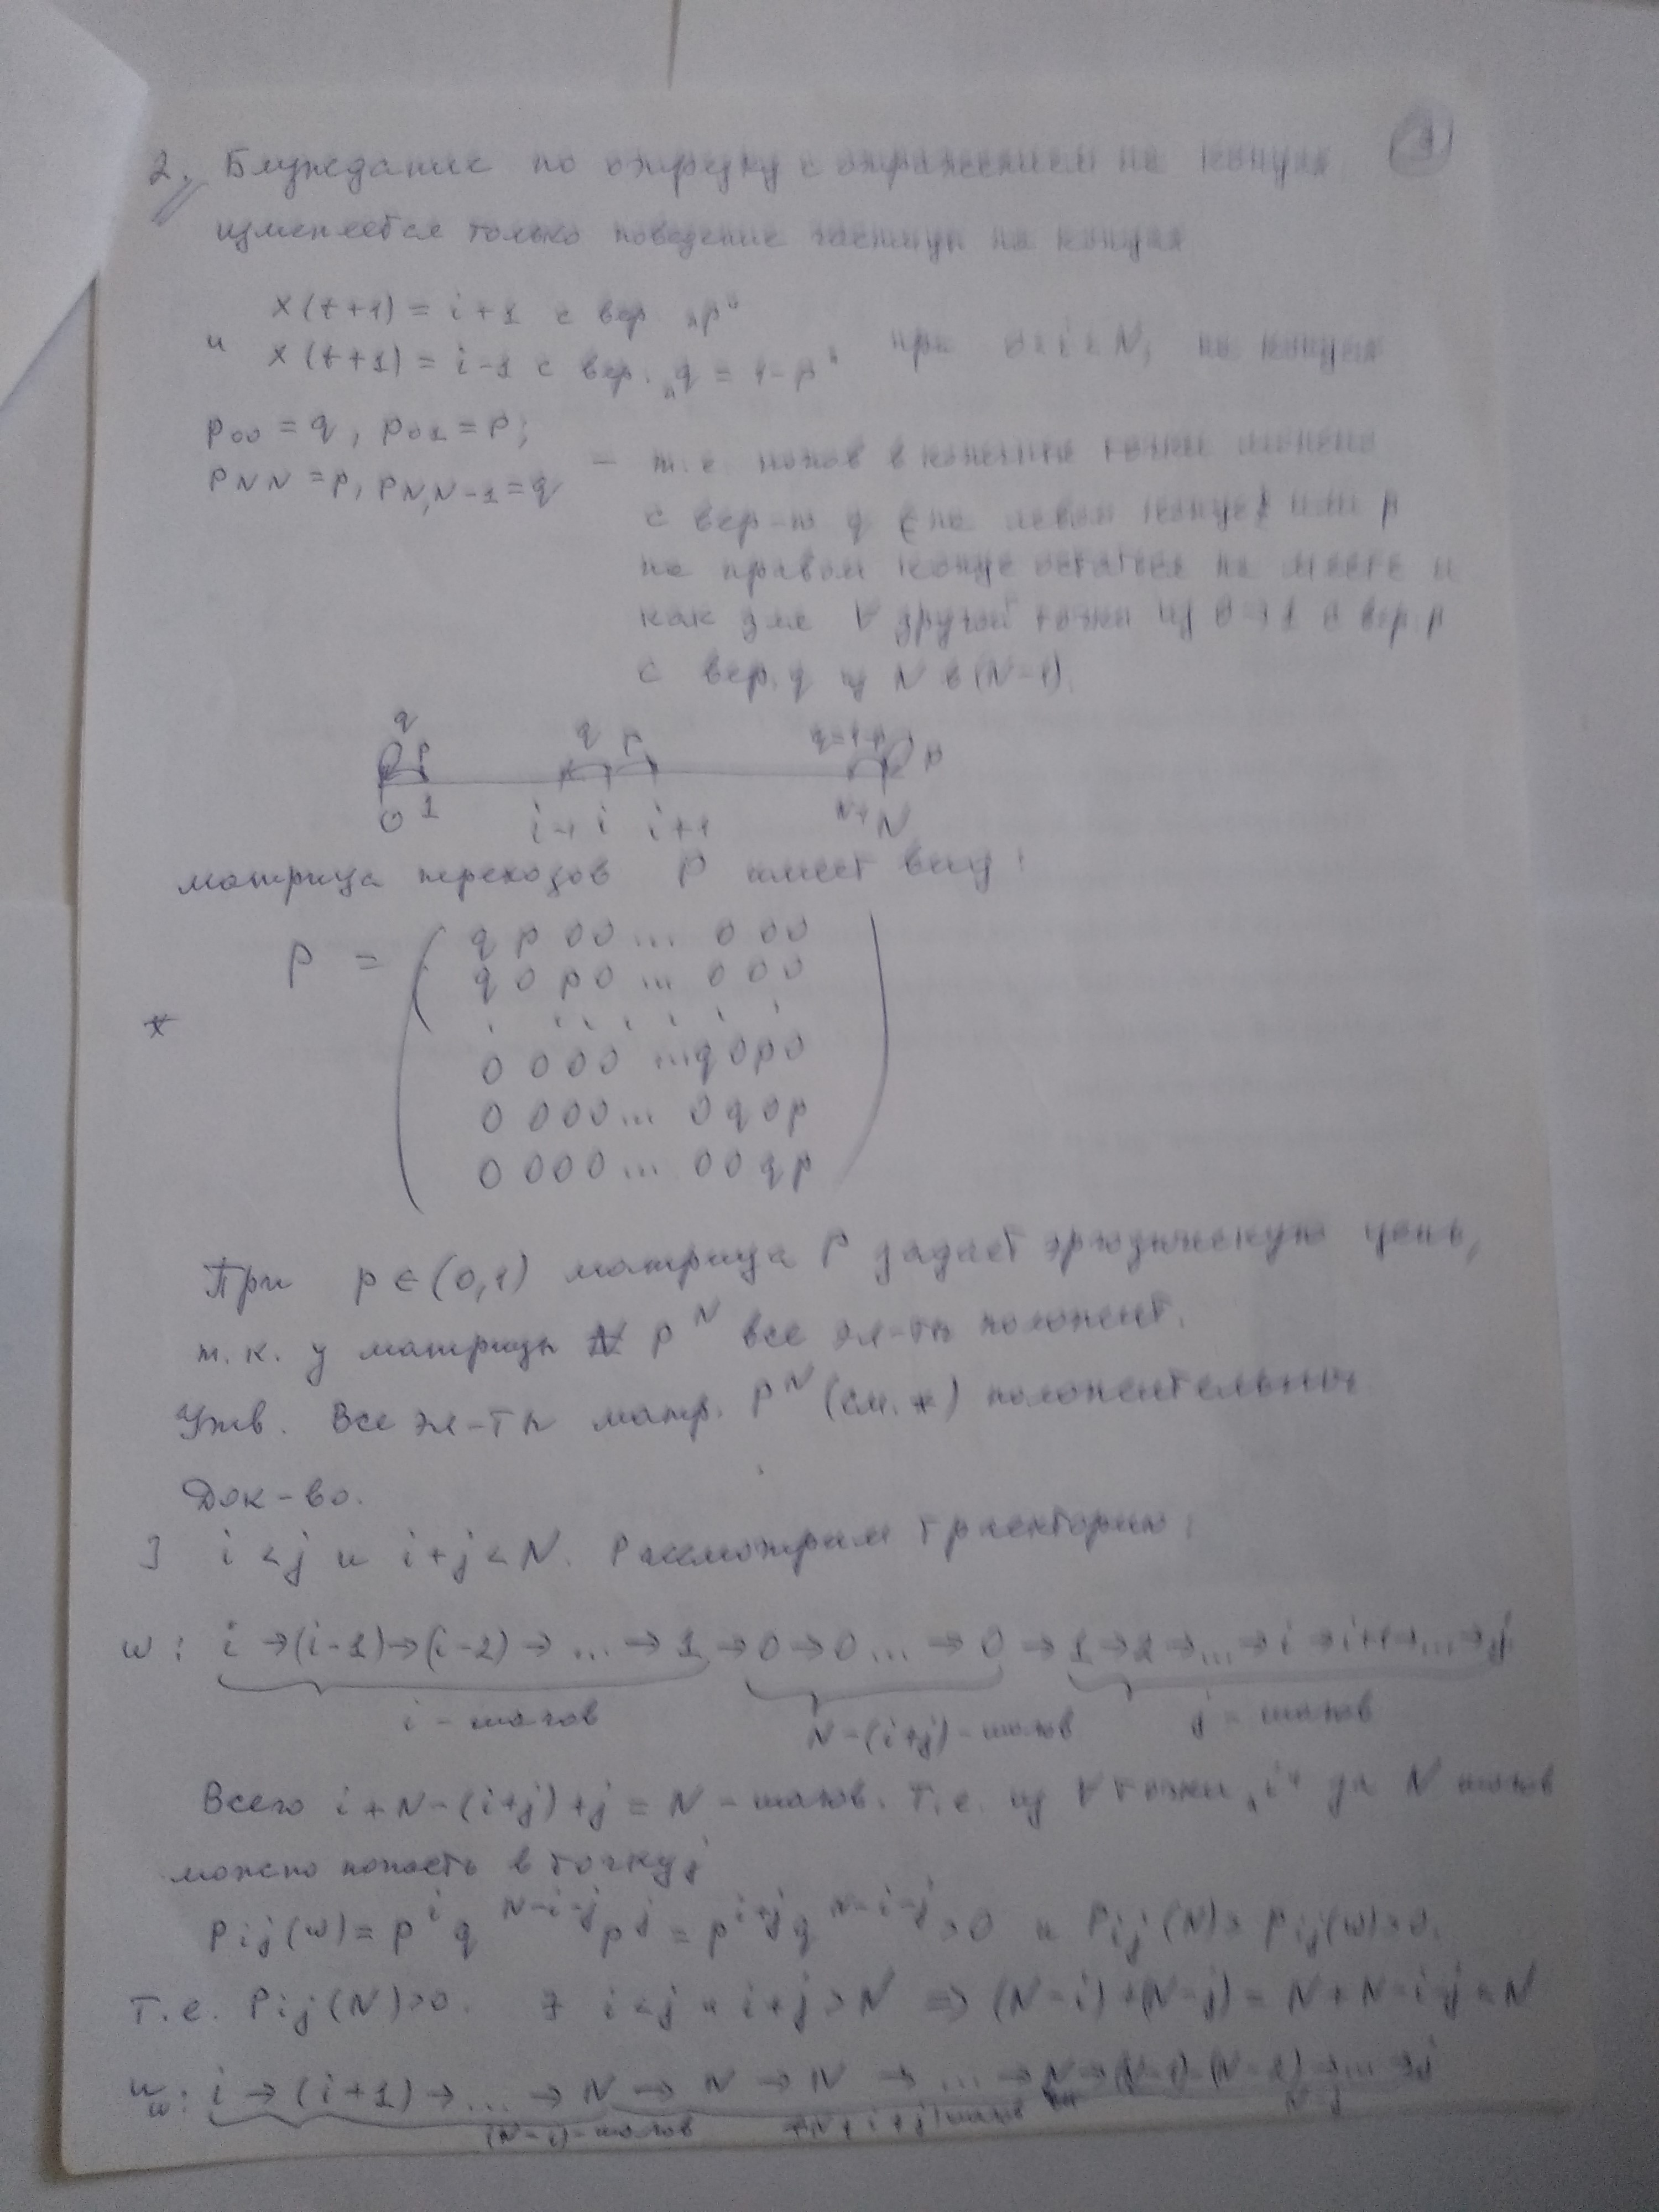 2. Блуждание по отрезку с отражением на концах
1
изменяется только поведение частицы на концах
x(t+1) = i+1 с вер „p“
и x(t+1) = i-1 с вер. „q = 1-p“ при 0<i<N, на концах
p00 = q, p01 = p;
pNN = p, pN,N-1 = q
– т.е. попав в конечные точки можно
с вер-ю q (на левом конце) или p
на правом конце остаться на месте и
как для ∀ другой точки из 0→1 с вер. p
с вер. q из N в (N-1).
q p q p q=1-p p
0 1 i-1 i i+1 N-1 N
матрица переходов P имеет вид:
P = ( q p 0 0 ... 0 0 0
q 0 p 0 ... 0 0 0
. . . . . . .
*
0 0 0 0 ... q 0 p 0
0 0 0 0 ... 0 q 0 p
0 0 0 0 ... 0 0 q p )
При p ∈ (0,1) матрица P задаёт эргодическую цепь,
т.к. у матрицы P^N все эл-ты положит.
Утв. Все эл-ты матр. P^N (см. *) положительны
Док-во.
] i < j и i+j < N. Рассмотрим траекторию:
w: i →(i-1)→(i-2)→ ... → 1 → 0 → 0 ... → 0 → 1 → 2 → ... → i → i+1 → ... → j
i – шагов N-(i+j) – шагов j – шагов
Всего i+N-(i+j)+j = N – шагов. Т.е. из ∀ точки „i“ за N шагов
можно попасть в точку j
Pij(w) = p^i q^N-i-j p^j = p^i+j q^N-i-j > 0 и Pij(N) > Pij(w) > 0.
Т.е. Pij(N) > 0. ] i < j и i+j > N ⇒ (N-i)+(N-j) = N+N-i-j < N
w: i → (i+1) → ... → N → N → N → ... → N → (N-1) → (N-2) → ... → j
(N-i) – шагов -N+i+j шагов N-j